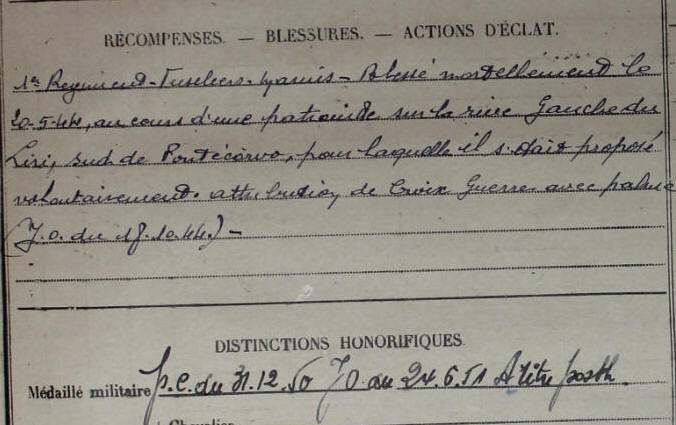 RÉCOMPENSES. — BLESSURES. — ACTIONS D'ÉCLAT.
1er Regiment-Fuseliers-Marins - Blessé mortellement le
20-5-44, au cours d'une patrouille sur la rive Gauche du
Liri, sud de Pontécorvo, pour laquelle il s'était proposé
volontairement. attribution de Croix Guerre avec palme
(J.O. du 18.10.44.) -
DISTINCTIONS HONORIFIQUES.
Médaillé militaire P.C. du 31.12.50 JO du 24.6.51 A titre posth.
Chevalier